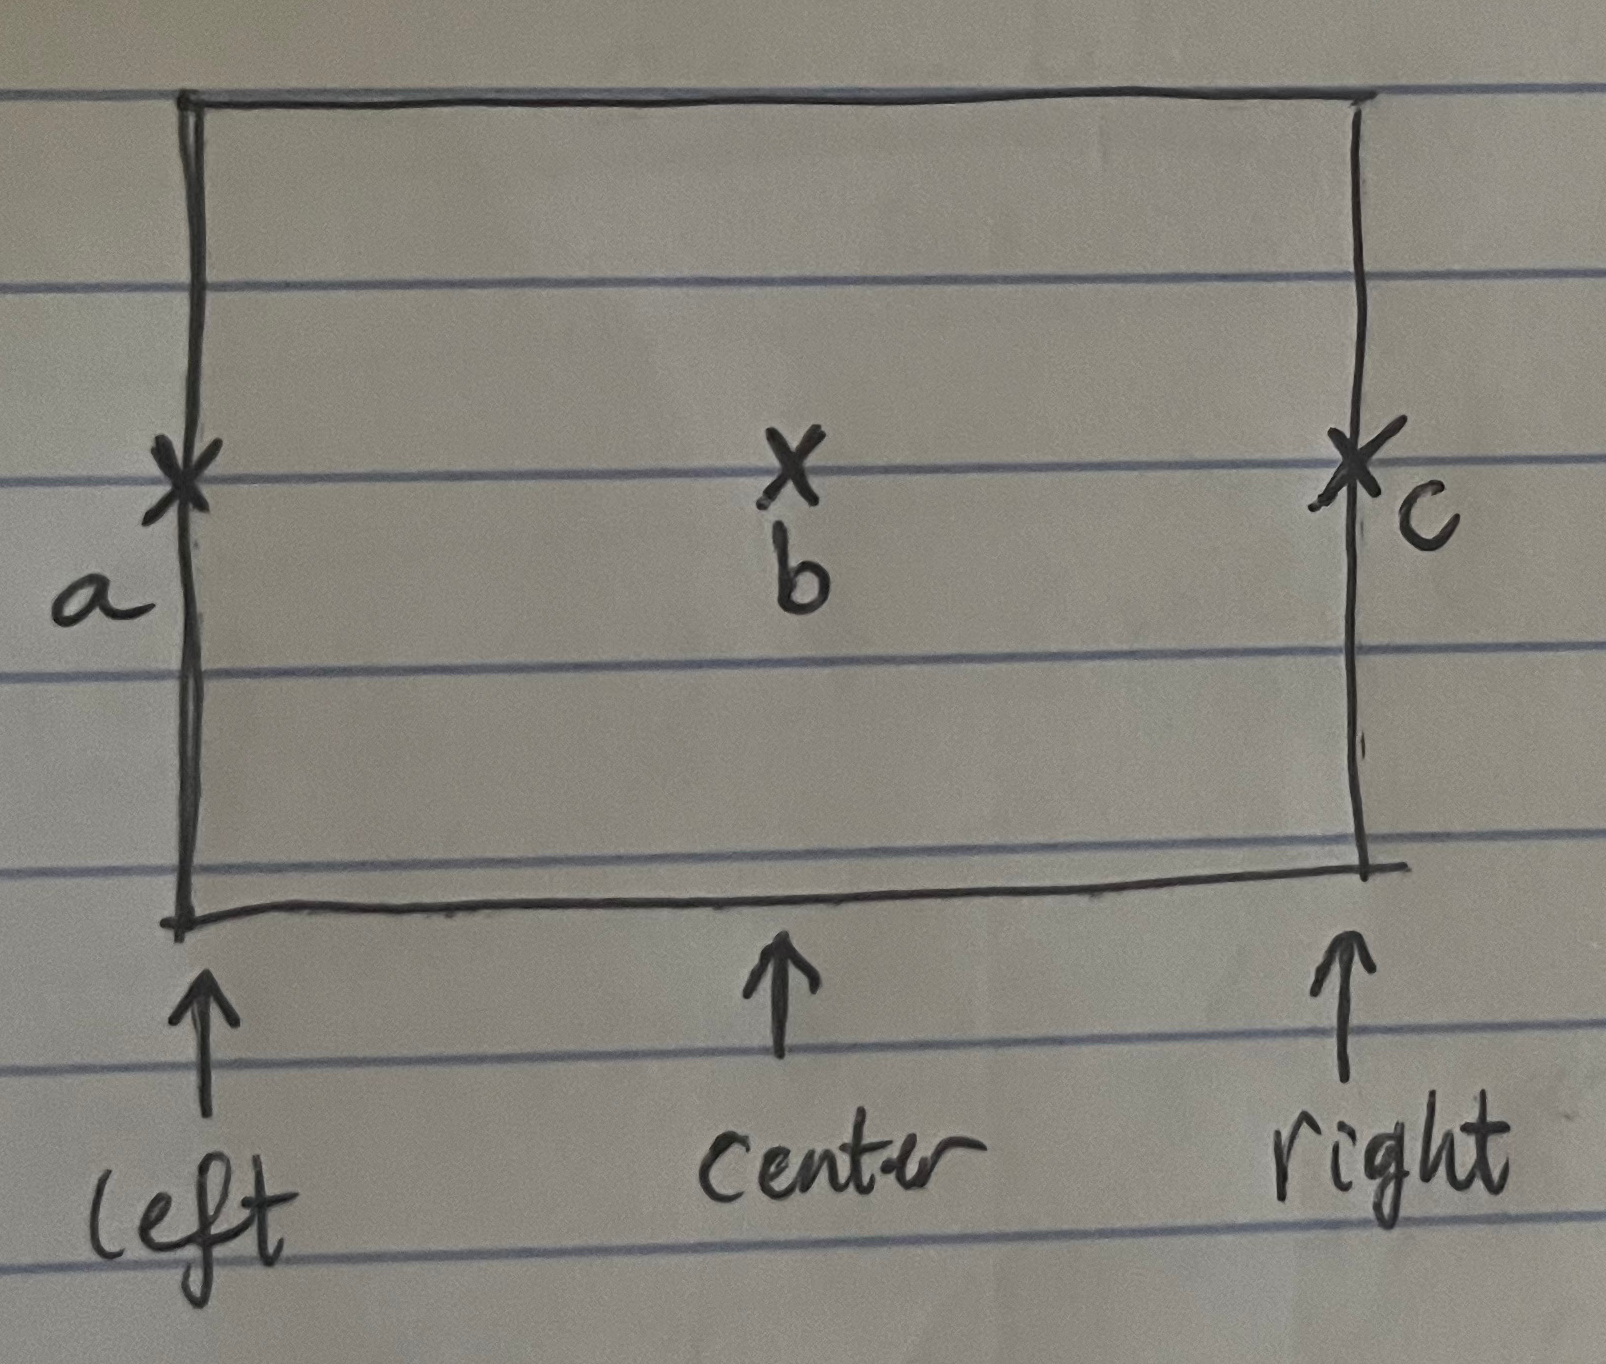 a b c
left center right